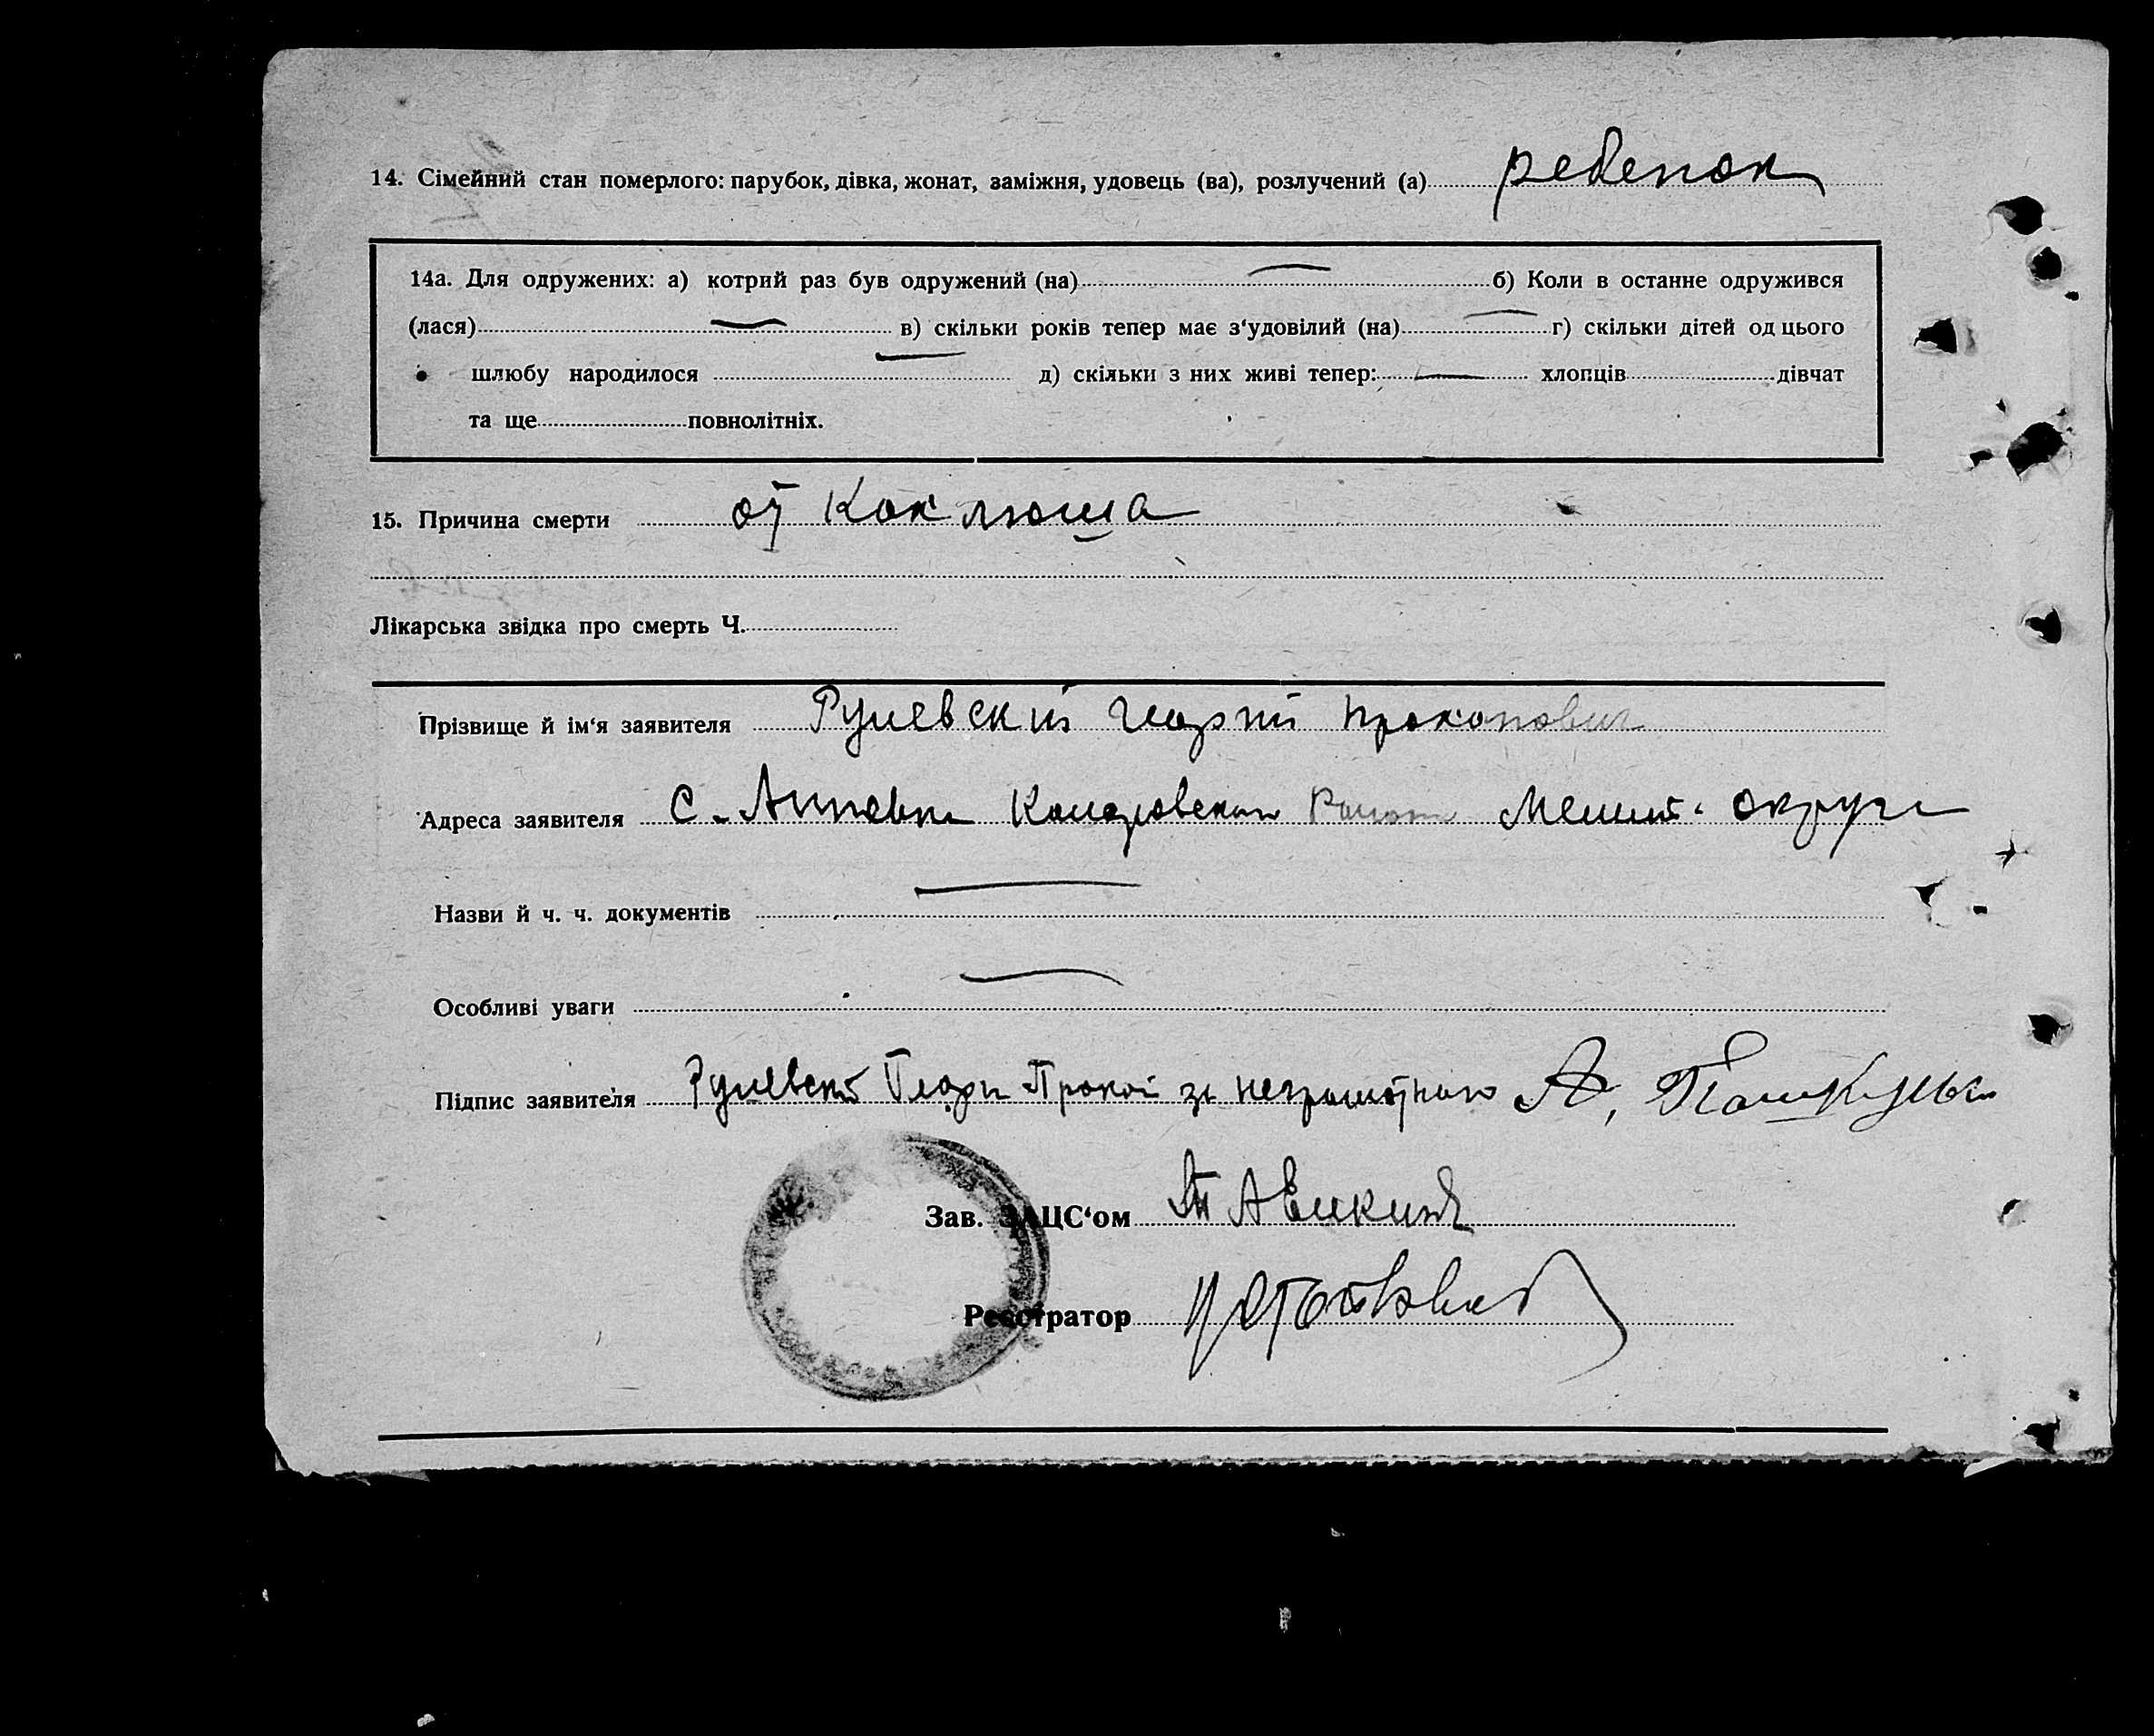 14. Сімейний стан померлого: парубок, дівка, жонат, заміжня, удовець (ва), розлучений (а) ребенок
14а. Для одружених: а) котрий раз був одружений (на) — б) Коли в останне одружився
(лася) — в) скільки років тепер має з‘удовілий (на) — г) скільки дітей од цього
шлюбу народилося — д) скільки з них живі тепер: — хлопців дівчат
та ще повнолітніх.
15. Причина смерти от Коклюша
Лікарська звідка про смерть Ч.
Прізвище й ім‘я заявителя Рулевский Георгий Прокопович
Адреса заявителя с. округа
Назви й ч. ч. документів —
Особливі уваги —
Підпис заявителя Рулевский за неграмотного А,
Зав. ЗАЦС‘ом
Реєстратор